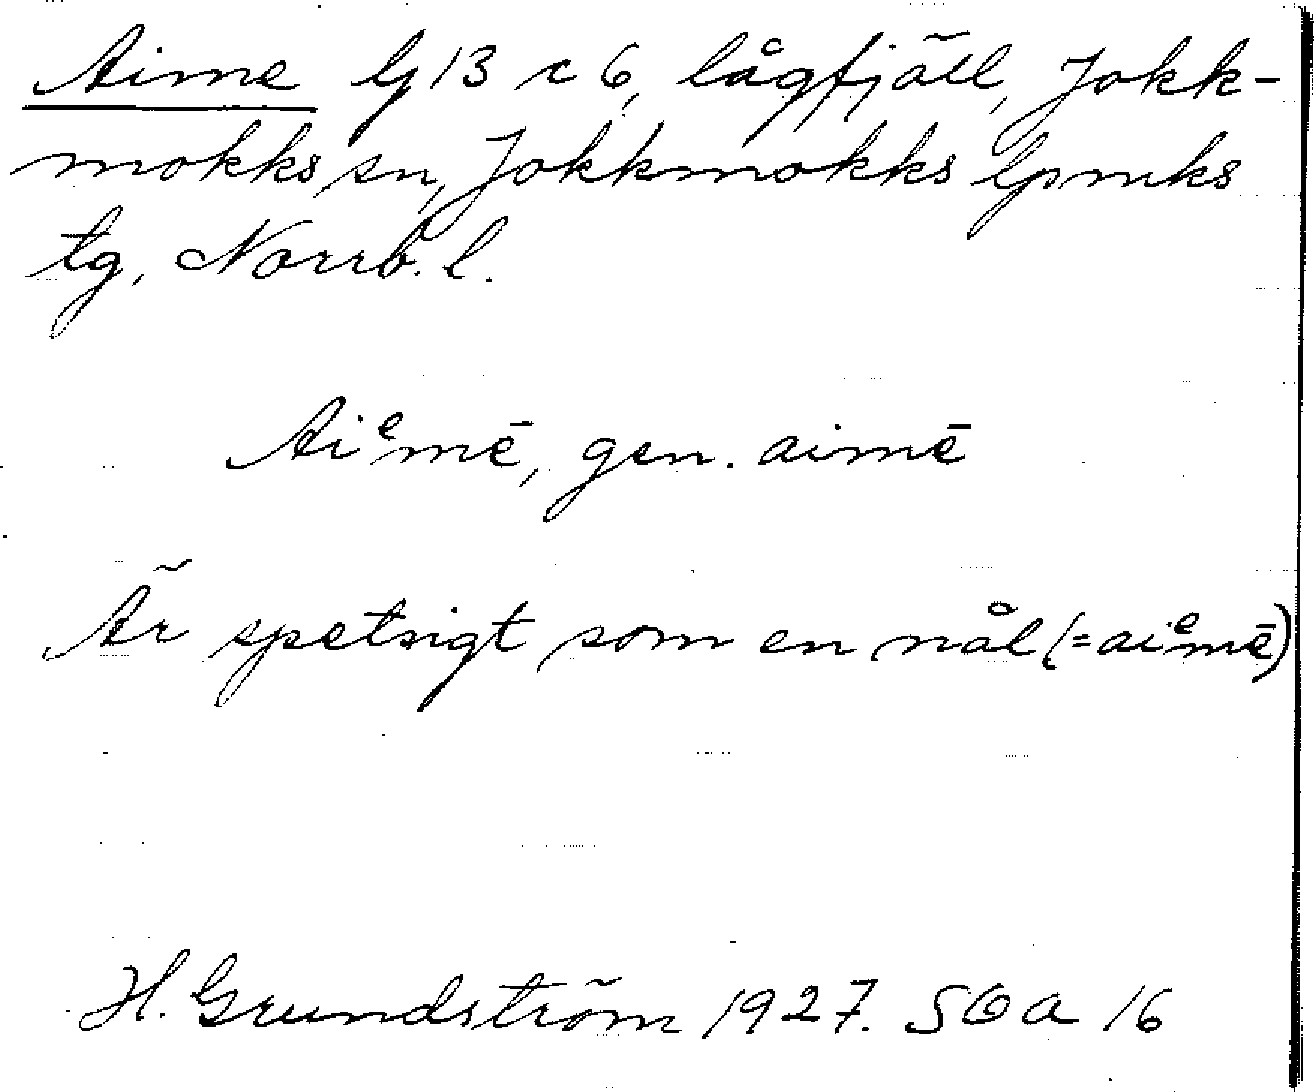 Aime G13 c 6, lågfjäll, Jokk-
mokks sn, Jokkmokks lpmks
tg, Norrb. l.
Aiᵉmē, gen. aimē
Är spetsigt som en nål (=aiᵉmē)
H. Grundström 1927. SOA 16